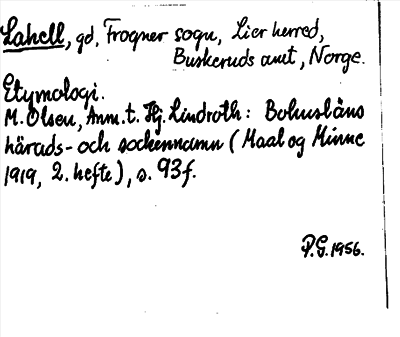 Lahell, gd, Frogner sogn, Lier herred,
Buskeruds amt, Norge.
Etymologi.
M. Olsen, Anm. t. Hj. Lindroth: Bohusläns
härads- och sockennamn (Maal og Minne
1919, 2. hefte), s. 93f.
P.G. 1956.